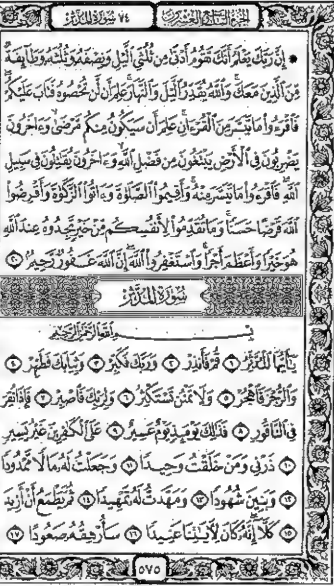 ٧٤ سورة المدثر
الجزء التاسع والعشرون
۞ إِنَّ رَبَّكَ يَعْلَمُ أَنَّكَ تَقُومُ أَدْنَىٰ مِن ثُلُثَيِ ٱلَّيْلِ وَنِصْفَهُۥ وَثُلُثَهُۥ وَطَآئِفَةٌ
مِّنَ ٱلَّذِينَ مَعَكَ ۚ وَٱللَّهُ يُقَدِّرُ ٱلَّيْلَ وَٱلنَّهَارَ ۚ عَلِمَ أَن لَّن تُحْصُوهُ فَتَابَ عَلَيْكُمْ ۖ
فَٱقْرَءُوا۟ مَا تَيَسَّرَ مِنَ ٱلْقُرْءَانِ ۚ عَلِمَ أَن سَيَكُونُ مِنكُم مَّرْضَىٰ ۙ وَءَاخَرُونَ
يَضْرِبُونَ فِى ٱلْأَرْضِ يَبْتَغُونَ مِن فَضْلِ ٱللَّهِ ۙ وَءَاخَرُونَ يُقَٰتِلُونَ فِى سَبِيلِ
ٱللَّهِ ۖ فَٱقْرَءُوا۟ مَا تَيَسَّرَ مِنْهُ ۚ وَأَقِيمُوا۟ ٱلصَّلَوٰةَ وَءَاتُوا۟ ٱلزَّكَوٰةَ وَأَقْرِضُوا۟
ٱللَّهَ قَرْضًا حَسَنًا ۚ وَمَا تُقَدِّمُوا۟ لِأَنفُسِكُم مِّنْ خَيْرٍ تَجِدُوهُ عِندَ ٱللَّهِ
هُوَ خَيْرًا وَأَعْظَمَ أَجْرًا ۚ وَٱسْتَغْفِرُوا۟ ٱللَّهَ ۖ إِنَّ ٱللَّهَ غَفُورٌ رَّحِيمٌۢ ٢٠
سورة المدثر
بِسْمِ ٱللَّهِ ٱلرَّحْمَٰنِ ٱلرَّحِيمِ
يَٰٓأَيُّهَا ٱلْمُدَّثِّرُ ١ قُمْ فَأَنذِرْ ٢ وَرَبَّكَ فَكَبِّرْ ٣ وَثِيَابَكَ فَطَهِّرْ ٤
وَٱلرُّجْزَ فَٱهْجُرْ ٥ وَلَا تَمْنُن تَسْتَكْثِرُ ٦ وَلِرَبِّكَ فَٱصْبِرْ ٧ فَإِذَا نُقِرَ
فِى ٱلنَّاقُورِ ٨ فَذَٰلِكَ يَوْمَئِذٍ يَوْمٌ عَسِيرٌ ٩ عَلَى ٱلْكَٰفِرِينَ غَيْرُ يَسِيرٍ
١٠ ذَرْنِى وَمَنْ خَلَقْتُ وَحِيدًا ١١ وَجَعَلْتُ لَهُۥ مَالًا مَّمْدُودًا
١٢ وَبَنِينَ شُهُودًا ١٣ وَمَهَّدتُّ لَهُۥ تَمْهِيدًا ١٤ ثُمَّ يَطْمَعُ أَنْ أَزِيدَ
١٥ كَلَّآ ۖ إِنَّهُۥ كَانَ لِءَايَٰتِنَا عَنِيدًا ١٦ سَأُرْهِقُهُۥ صَعُودًا ١٧
٥٧٥